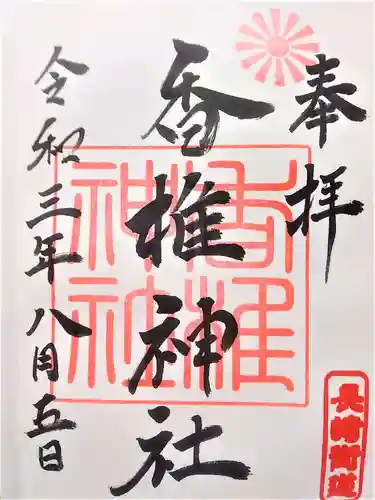 奉拝
香椎神社
令和三年八月五日
香椎
神社